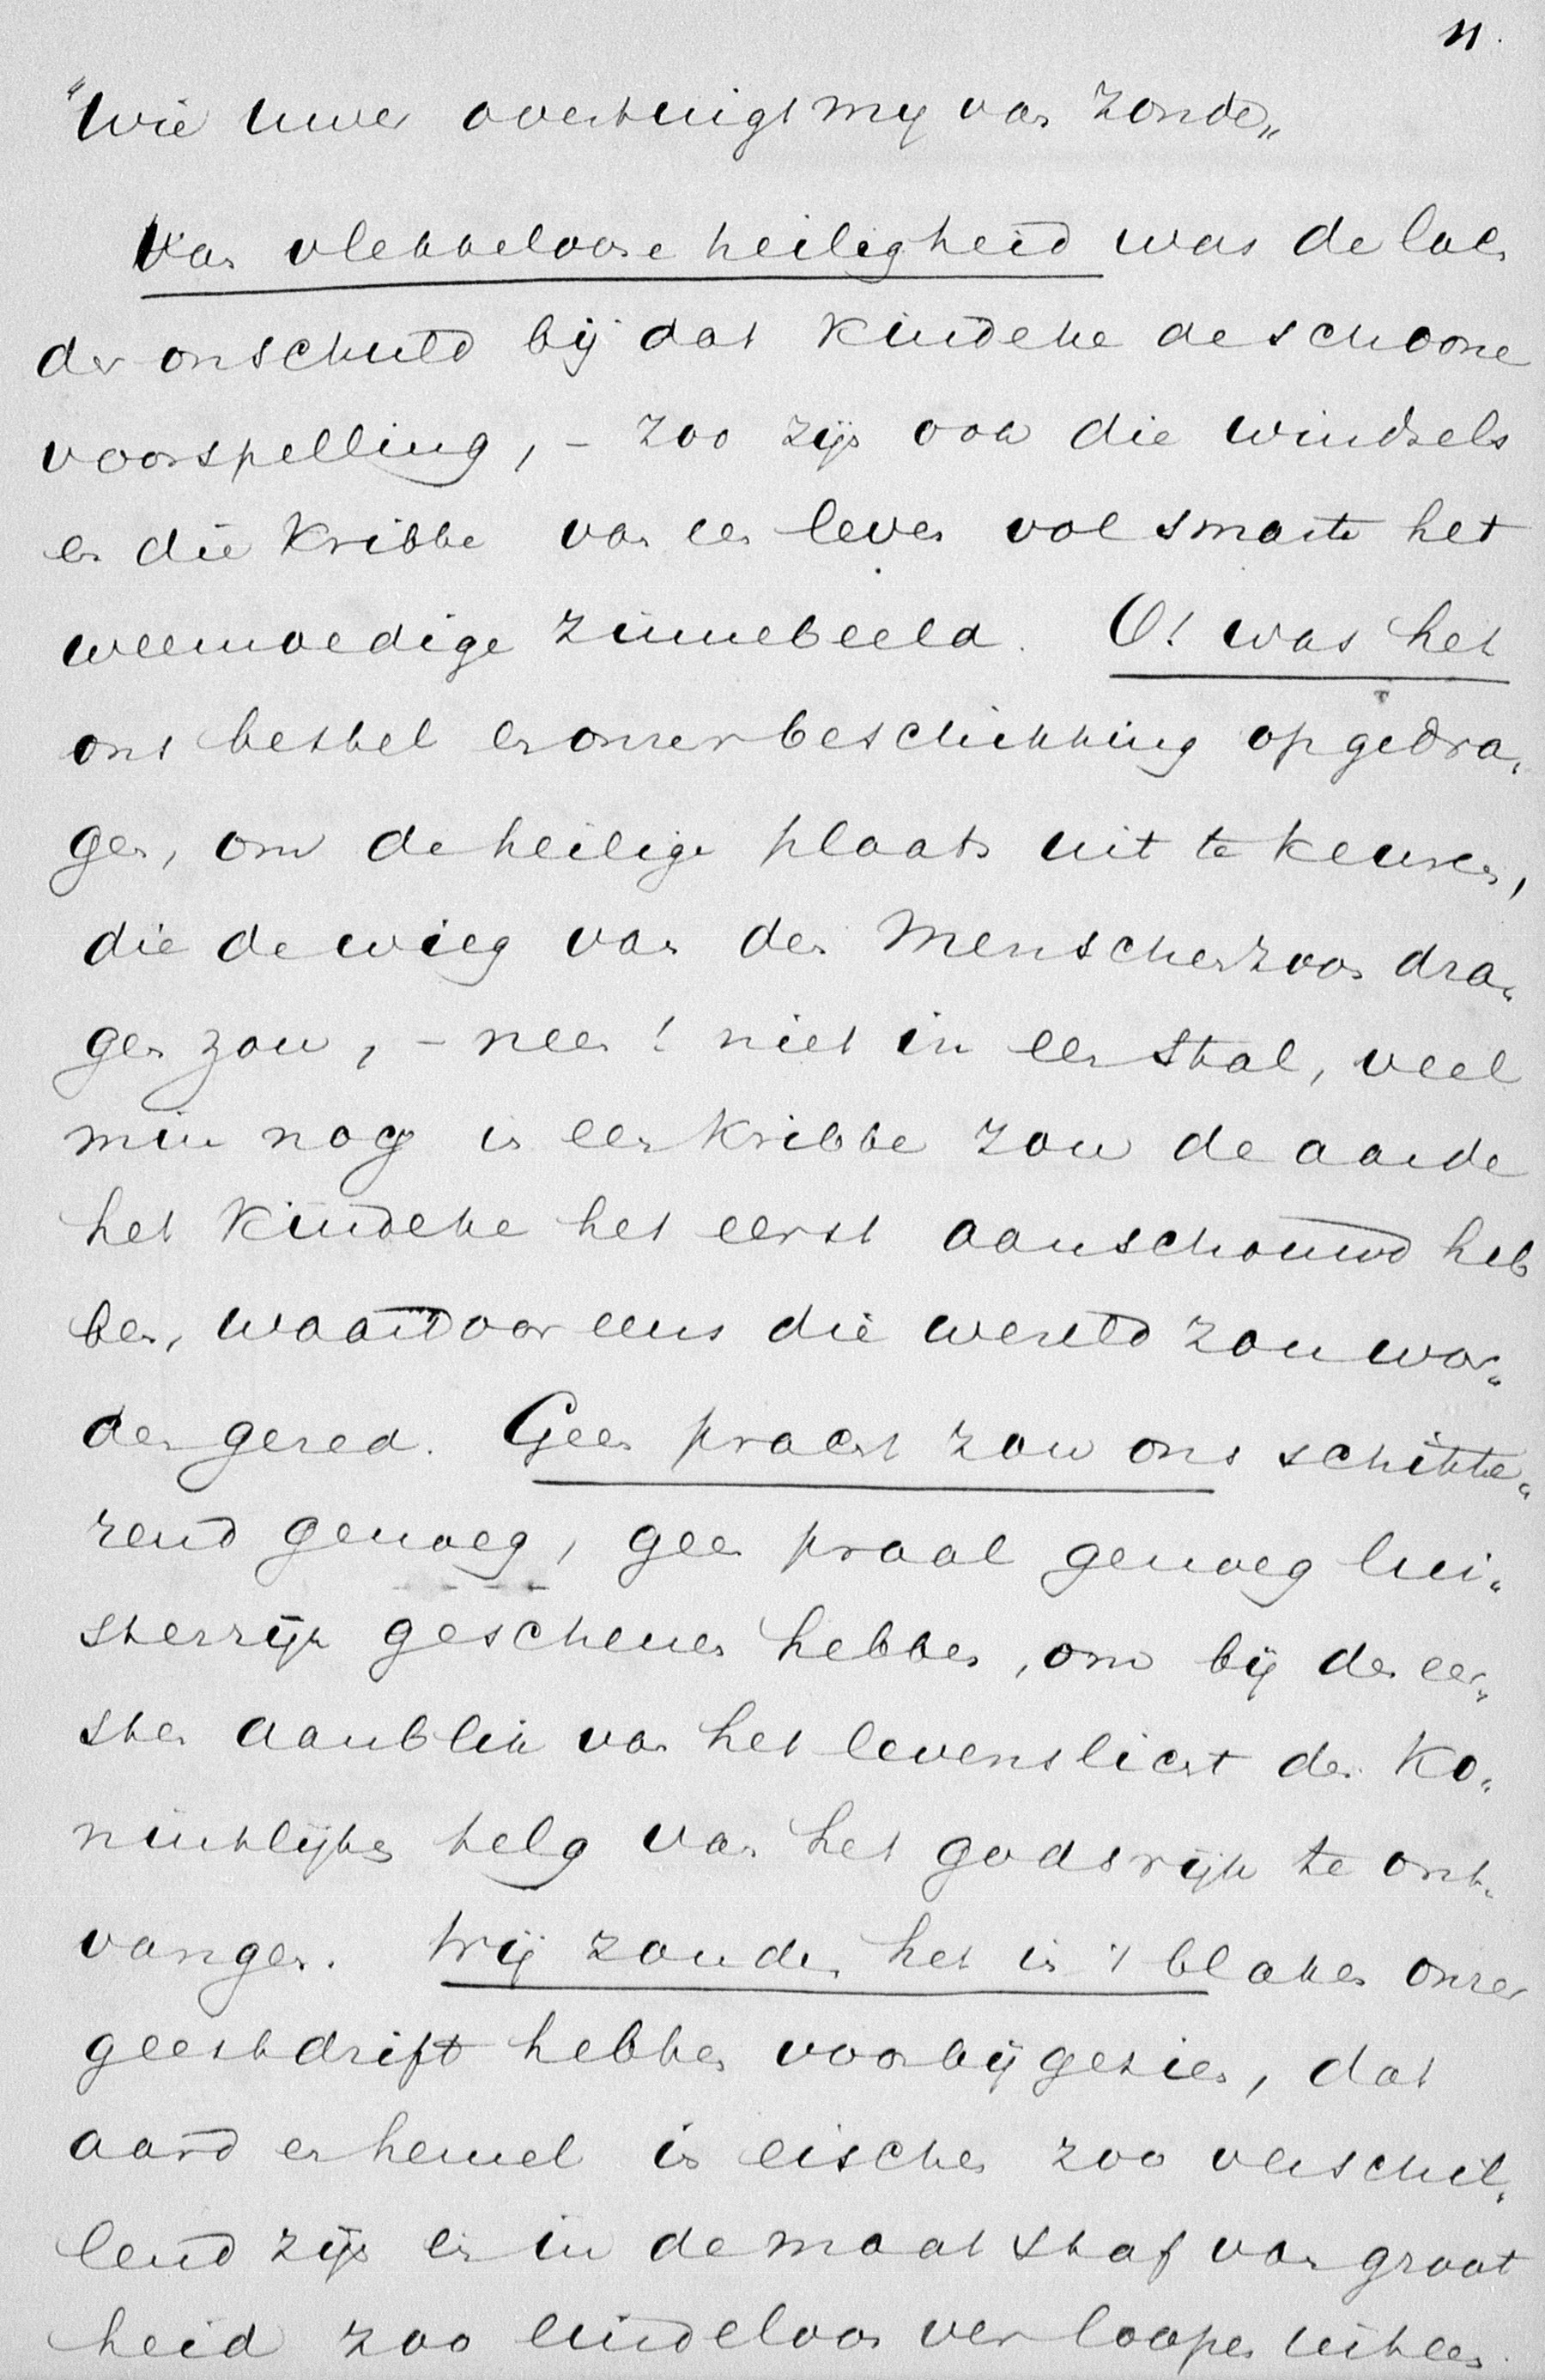 11.
"Wie uwer overtuigt my van zonde"
Van vlekkelooze heiligheid was de lach
der onschuld bij dat kindeke de schoone
voorspelling, – zoo zijn ook die windsels
en die kribbe van een leven vol smarte het
weemoedige zinnebeeld. O! was het
ons bestel en onzer beschikking opgedra„
gen, om de heilige plaats uit te keuren,
die de wieg van den Menschenzoon dra„
gen zou, – neen! niet in een stal, veel
min nog in een kribbe zou de aarde
het kindeke het eerst aanschouwd heb
ben, waardoor eens die wereld zou wor„
den gered. Geen pracht zou ons schitte„
rend genoeg, geen praal genoeg lui„
sterrijk geschenen hebben, om bij den eer„
sten aanblik van het levenslicht den Ko„
ninklijken telg van het godsrijk te ont„
vangen. Wij zouden het in 't blaken onzer
geestdrift hebben voorbijgezien, dat
aard en hemel in eischen zoo verschil„
lend zijn en in de maatstaf van groot
heid zoo eindeloos ver loopen uiteen.